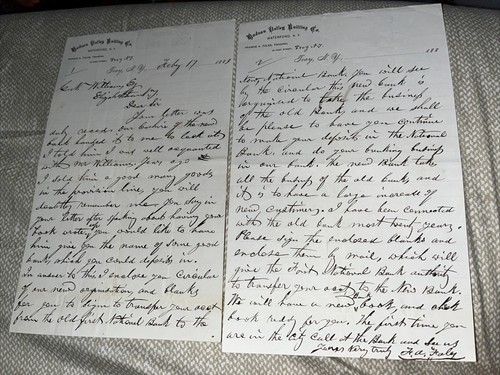 Hudson Valley Knitting Co.
WATERFORD, N.Y.
Troy, N.Y. Feby 17 188
Williams Esq
Dear Sir
Your letter was
duly recd. our Cashier of the new
bank handed it to me to look it
I told him I was well acquainted
Mr Williams, years ago
I sold him a good many goods
in the provision line, you will
doubtless remember me you say in
your letter after speaking about having your
book wrote up you would like to have
him give you the name of some good
bank which you could deposit in.
in answer to this I enclose you Circular
of our new organization, and blanks
for you to sign to transfer your acct
from the old first National Bank to the
Hudson Valley Knitting Co.
WATERFORD, N.Y.
2 Troy, N.Y. 188
National Bank. you will see
by the Circular this new bank is
organized to take the business
of the old Bank, and we shall
be please to have you continue
to make your deposits in the National
Bank and do your banking business
in our bank. the new Bank takes
all the business of the old bank, and
it is to have a large increase of
new customers. I have been connected
with the old bank most twenty years.
Please sign the enclosed blanks and
enclose them by mail, which will
give the First National Bank authority
to transfer your acct to the New Bank.
We will have a new book, and check
book ready for you. The first time you
are in the City Call at the Bank and see us
Yours Very truly